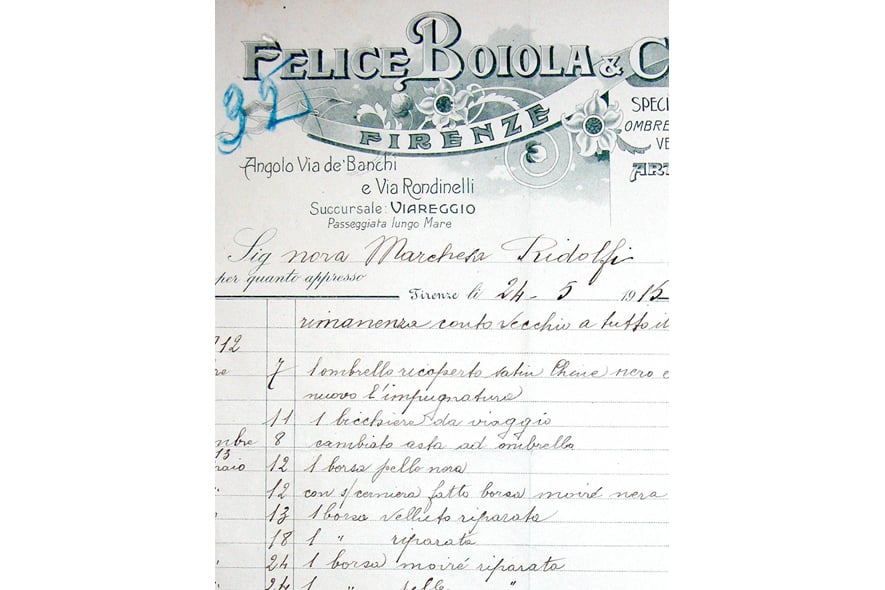 FELICE BOIOLA & C
92
FIRENZE
SPECI
OMBRE
VE
ART
Angolo Via de' Banchi
e Via Rondinelli
Succursale: VIAREGGIO
Passeggiata lungo Mare
Signora Marchesa Ridolfi
per quanto appresso
Firenze li 24 - 5 1915
rimanenza conto vecchio a tutto il
12
7 1 ombrello ricoperto satin Chine nero e
nuovo l'impugnatura
11 1 bicchiere da viaggio
mbre 8 cambiato asta ad ombrello
13
aio 12 1 borsa pelle nera
" 12 con s/ cerniera fatto borsa moiré nera
" 13 1 borsa velluto riparata
18 1 " riparata
" 24 1 borsa moiré riparata
" 24 1 " pelle "